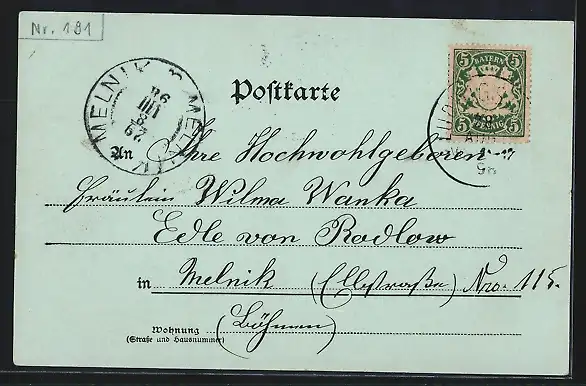 Nr. 191
MELNIK MĚLNÍK
Postkarte
BAYERN
5 5
5 PFENNIG 5
An Ihre Hochwohlgeboren
Fräulein Wilma Wanka
Edle von Rodlow
in Melnik (Elbstraße) Nro. 115.
Wohnung (Böhmen)
(Straße und Hausnummer)